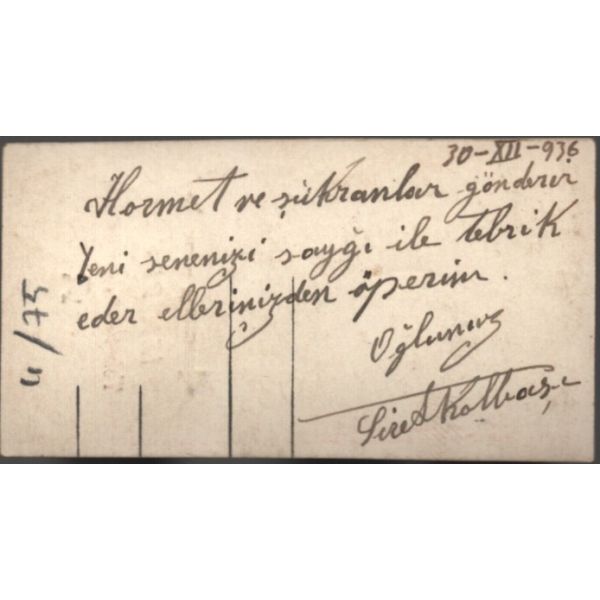 30-XII-936
Hormet ve şükranlar gönderir
Yeni senenizi saygı ile tebrik
eder ellerinizden öperim.
Oğlunuz
4/75